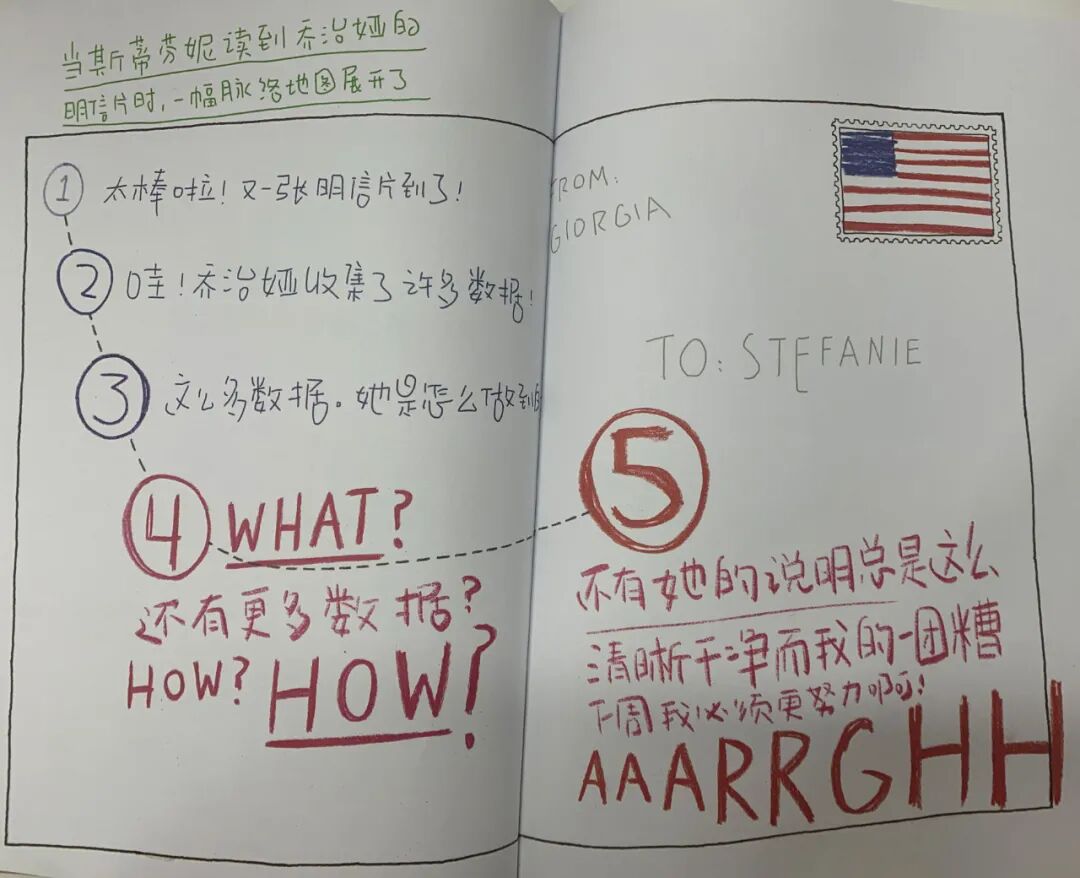 当斯蒂芬妮读到乔治娅的
明信片时，一幅脉络地图展开了
1 太棒啦！又一张明信片到了！
2 哇！乔治娅收集了许多数据！
3 这么多数据。她是怎么做到
4 WHAT?
还有更多数据？
HOW? HOW?!
FROM:
GIORGIA
TO: STEFANIE
5
还有她的说明总是这么
清晰干净而我的一团糟
下周我必须更努力啊啊！
AAARRGHH